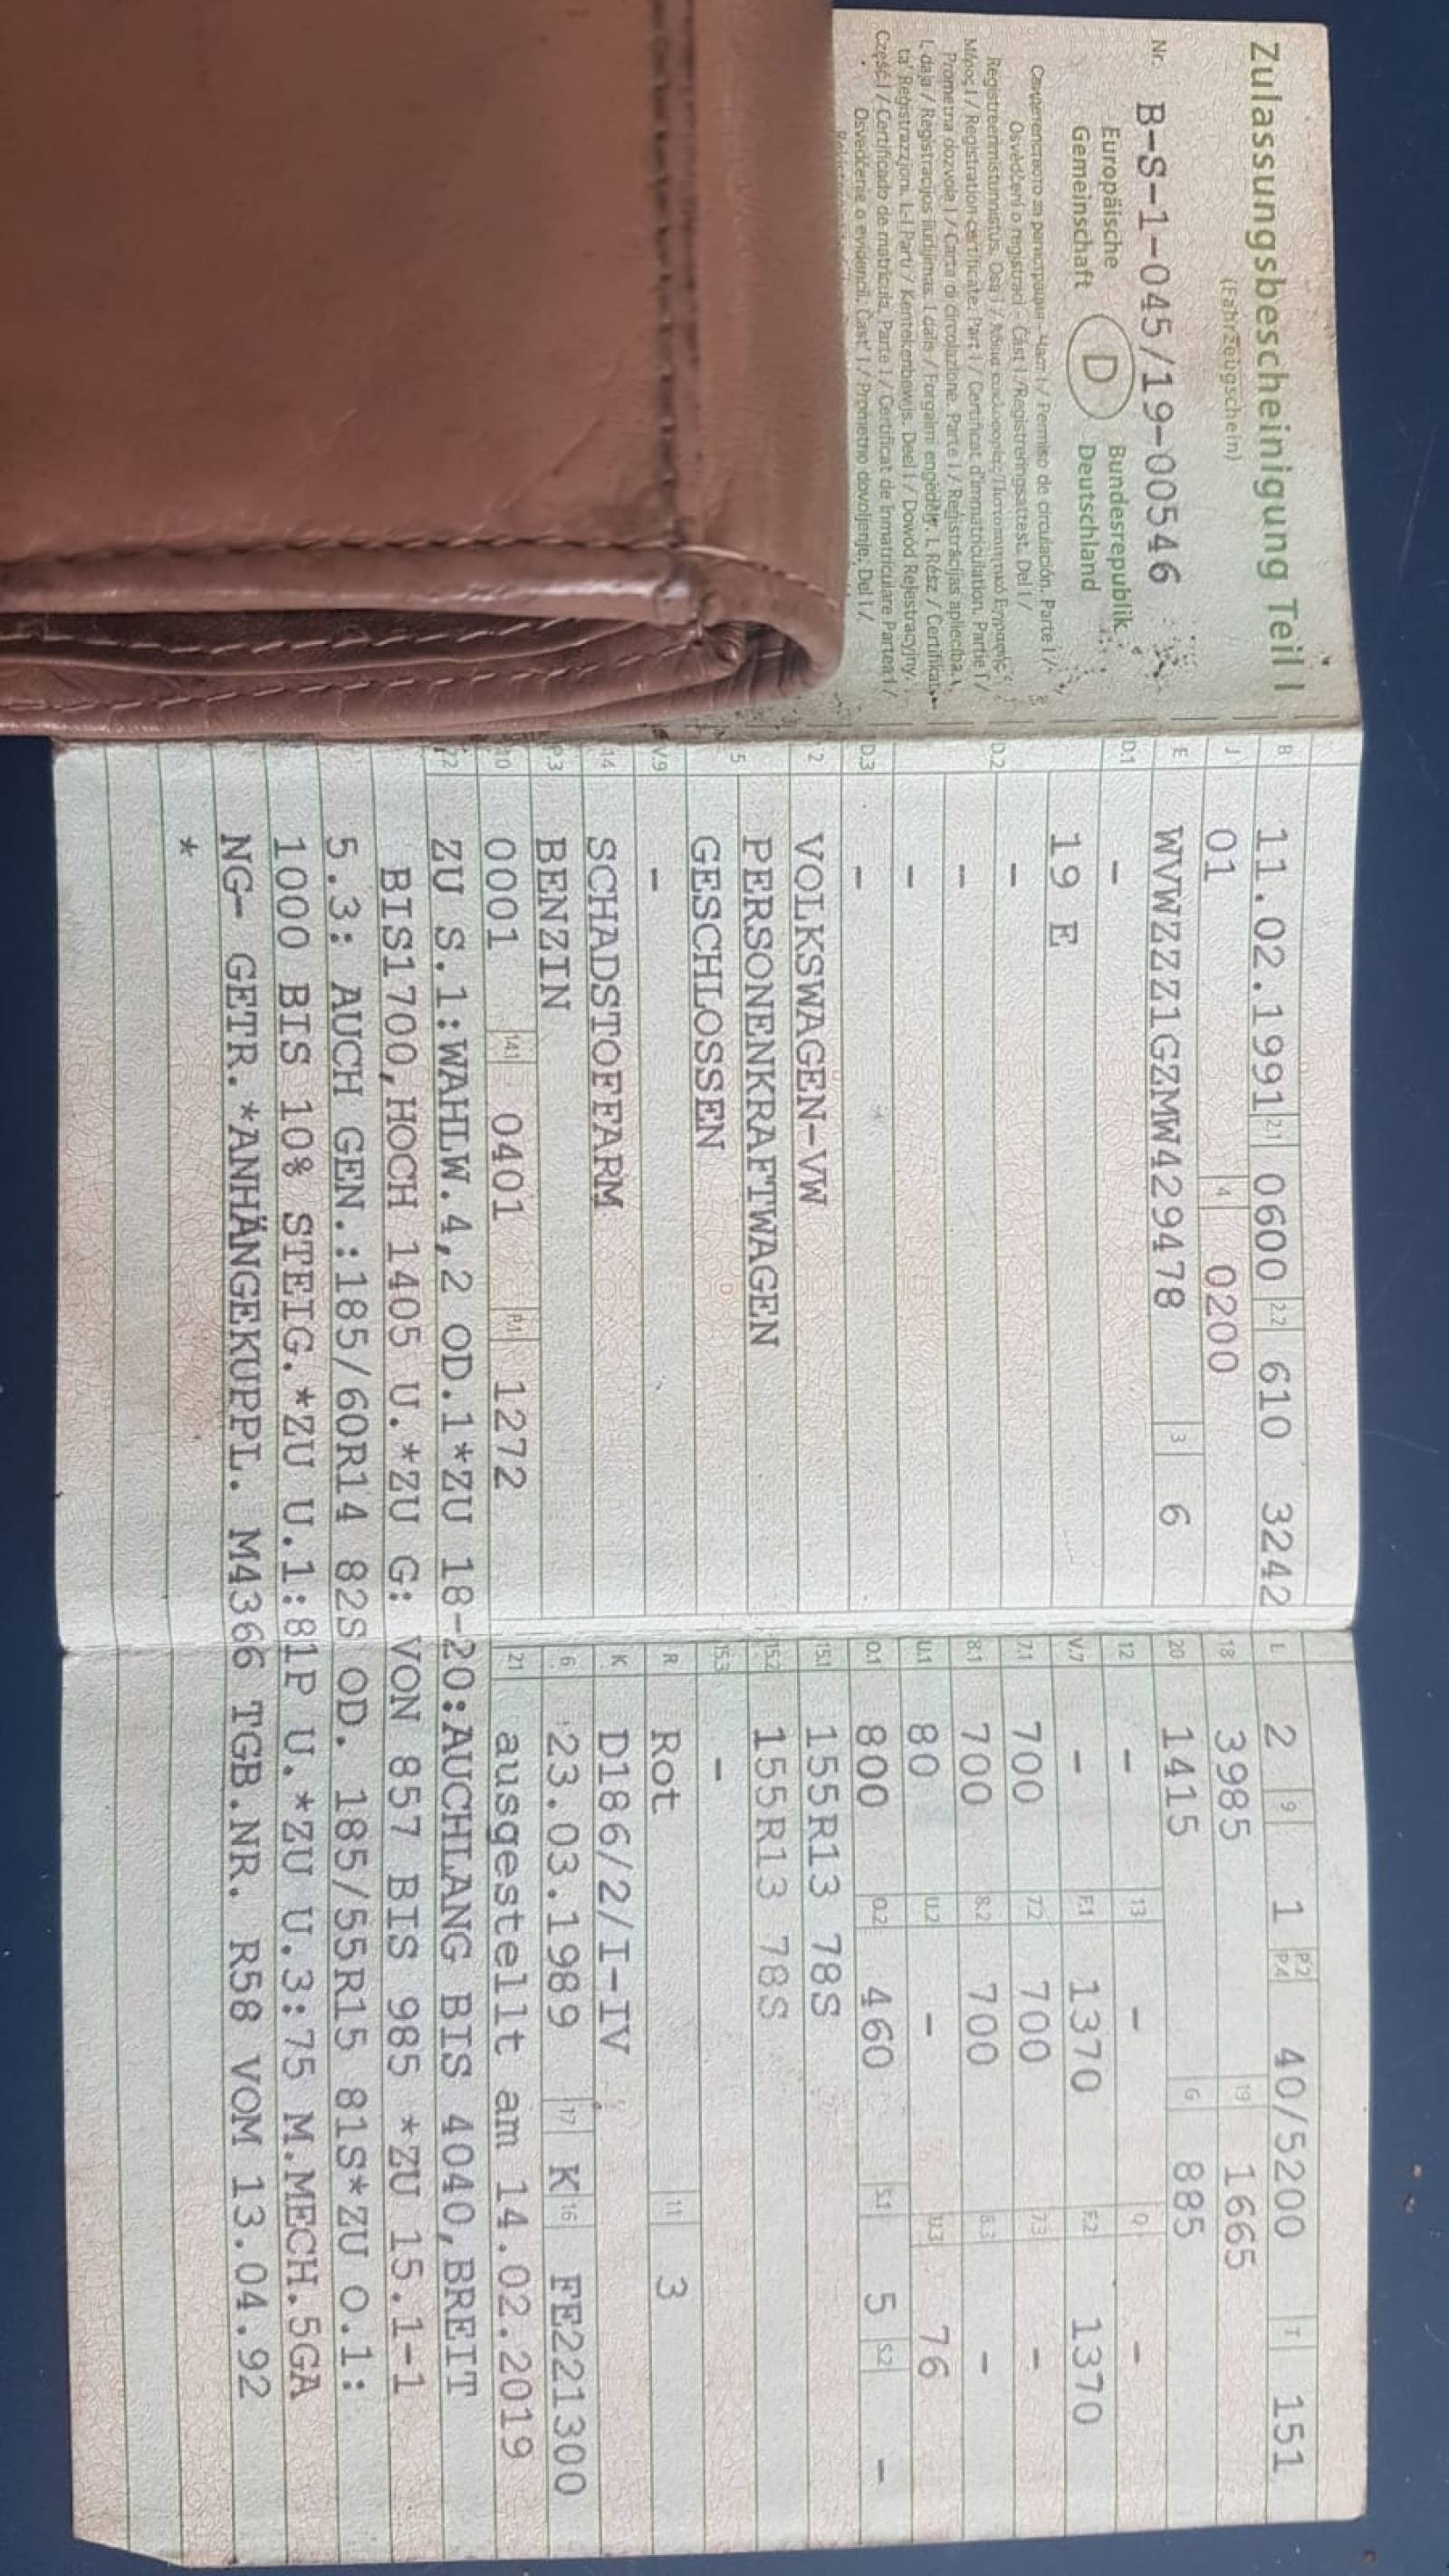 Zulassungsbescheinigung Teil I
(Fahrzeugschein)
Nr. B-S-1-045/19-00546
Europäische Gemeinschaft
D
Bundesrepublik Deutschland
Свидетелство за регистрация - Част I / Permiso de circulación. Parte I /
Osvědčení o registraci - Část I / Registreringsattest. Del I /
Registreerimistunnistus. Osa I /
Μέρος I / Registration certificate. Part I / Certificat d'immatriculation. Partie I /
Prometna dozvola I / Carta di circolazione. Parte I / Reģistrācijas apliecība.
I. daļa / Registracijos liudijimas. I dalis / Forgalmi engedély. I. Rész / Certifikat
ta' Reġistrazzjoni. L-I Parti / Kentekenbewijs. Deel I / Dowód Rejestracyjny
Część I / Certificado de matrícula. Parte I / Certificat de înmatriculare Partea I /
Osvedčenie o evidencii. Časť I / Prometno dovoljenje. Del I /
B 11.02.1991 2.1 0600 2.2 610 3242
J 01 4 0200
E WVWZZZ1GZMW429478 3 6
D.1 -
19 E
D.2 -
-
-
D.3 -
2 VOLKSWAGEN-VW
5 PERSONENKRAFTWAGEN
GESCHLOSSEN
V.9 -
14 SCHADSTOFFARM
P.3 BENZIN
10 0001 14.1 0401 P.1 1272
L 2 9 1 P.2 P.4 40/5200 T 151
18 3985 19 1665
20 1415 G 885
12 - 13 - Q -
V.7 - F.1 1370 F.2 1370
7.1 700 7.2 700 7.3 -
8.1 700 8.2 700 8.3 -
U.1 80 U.2 - U.3 76
O.1 800 O.2 460 S.1 5 S.2 -
15.1 155R13 78S
15.2 155R13 78S
15.3 -
R Rot 11 3
K D186/2/I-IV
6 23.03.1989 17 K 16 FE221300
21 ausgestellt am 14.02.2019
22 ZU S.1:WAHLW.4,2 OD.1*ZU 18-20:AUCHLANG BIS 4040,BREIT
BIS1700,HOCH 1405 U.*ZU G: VON 857 BIS 985 *ZU 15.1-1
5.3: AUCH GEN.:185/60R14 82S OD. 185/55R15 81S*ZU O.1:
1000 BIS 10% STEIG.*ZU U.1:81P U.*ZU U.3:75 M.MECH.5GA
NG- GETR.*ANHÄNGEKUPPL. M4366 TGB.NR. R58 VOM 13.04.92
*